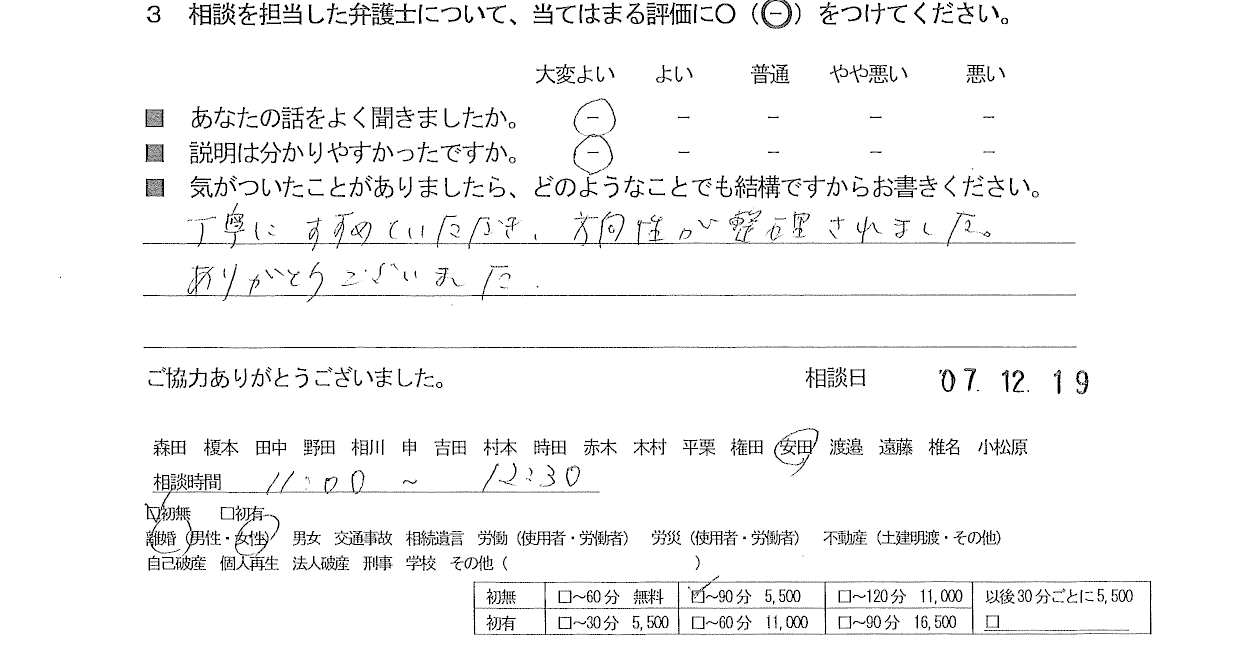 3 相談を担当した弁護士について、当てはまる評価に〇（㊀）をつけてください。
大変よい よい 普通 やや悪い 悪い
■ あなたの話をよく聞きましたか。 － － － － －
■ 説明は分かりやすかったですか。 － － － － －
■ 気がついたことがありましたら、どのようなことでも結構ですからお書きください。
丁寧にすすめていただき、方向性が整理されました。
ありがとうございました.
ご協力ありがとうございました。 相談日 '07. 12. 19
森田 榎本 田中 野田 相川 申 吉田 村本 時田 赤木 木村 平栗 権田 安田 渡邉 遠藤 椎名 小松原
相談時間 11:00 ～ 12:30
☑初無 □初有
離婚（男性・女性） 男女 交通事故 相続遺言 労働（使用者・労働者） 労災（使用者・労働者） 不動産（土建明渡・その他）
自己破産 個人再生 法人破産 刑事 学校 その他（ ）
初無 □～60分 無料 ☑～90分 5,500 □～120分 11,000 以後30分ごとに5,500
初有 □～30分 5,500 □～60分 11,000 □～90分 16,500 □